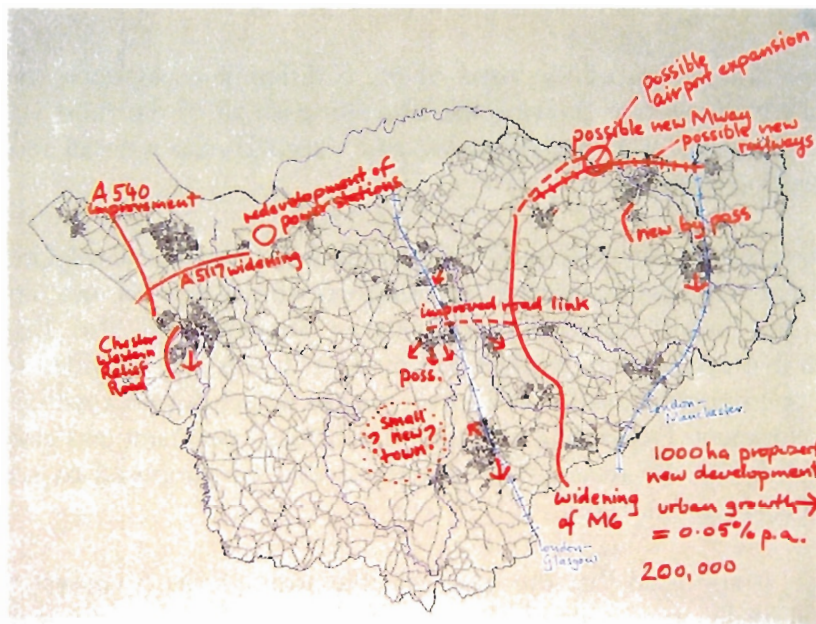 possible
airport expansion
possible new Mway
possible new
railways
A 540
improvement
redevelopment of
power stations
new by pass
A5117 widening
improved road link
Chester
Western
Relief
Road
poss.
small
? new ?
town
London-
Manchester
1000 ha proposed
new development
widening
of M6
urban growth →
= 0.05% p.a.
London-
Glasgow
200,000